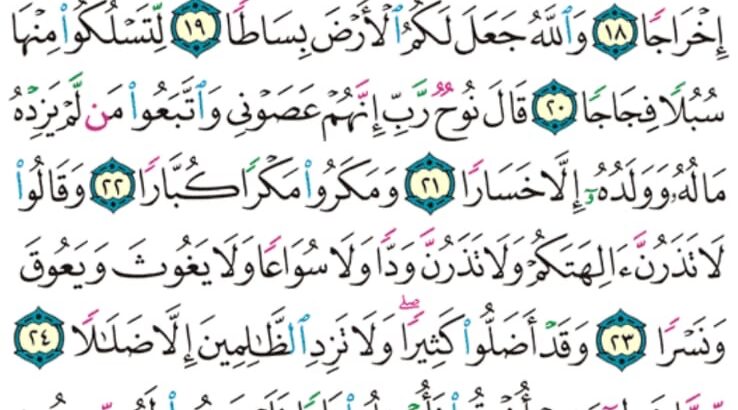 إِخۡرَاجٗا ١٨ وَٱللَّهُ جَعَلَ لَكُمُ ٱلۡأَرۡضَ بِسَاطٗا ١٩ لِّتَسۡلُكُواْ مِنۡهَا
سُبُلٗا فِجَاجٗا ٢٠ قَالَ نُوحٞ رَّبِّ إِنَّهُمۡ عَصَوۡنِي وَٱتَّبَعُواْ مَن لَّمۡ يَزِدۡهُ
مَالُهُۥ وَوَلَدُهُۥٓ إِلَّا خَسَارٗا ٢١ وَمَكَرُواْ مَكۡرٗا كُبَّارٗا ٢٢ وَقَالُواْ
لَا تَذَرُنَّ ءَالِهَتَكُمۡ وَلَا تَذَرُنَّ وَدّٗا وَلَا سُوَاعٗا وَلَا يَغُوثَ وَيَعُوقَ
وَنَسۡرٗا ٢٣ وَقَدۡ أَضَلُّواْ كَثِيرٗاۖ وَلَا تَزِدِ ٱلظَّٰلِمِينَ إِلَّا ضَلَٰلٗا ٢٤